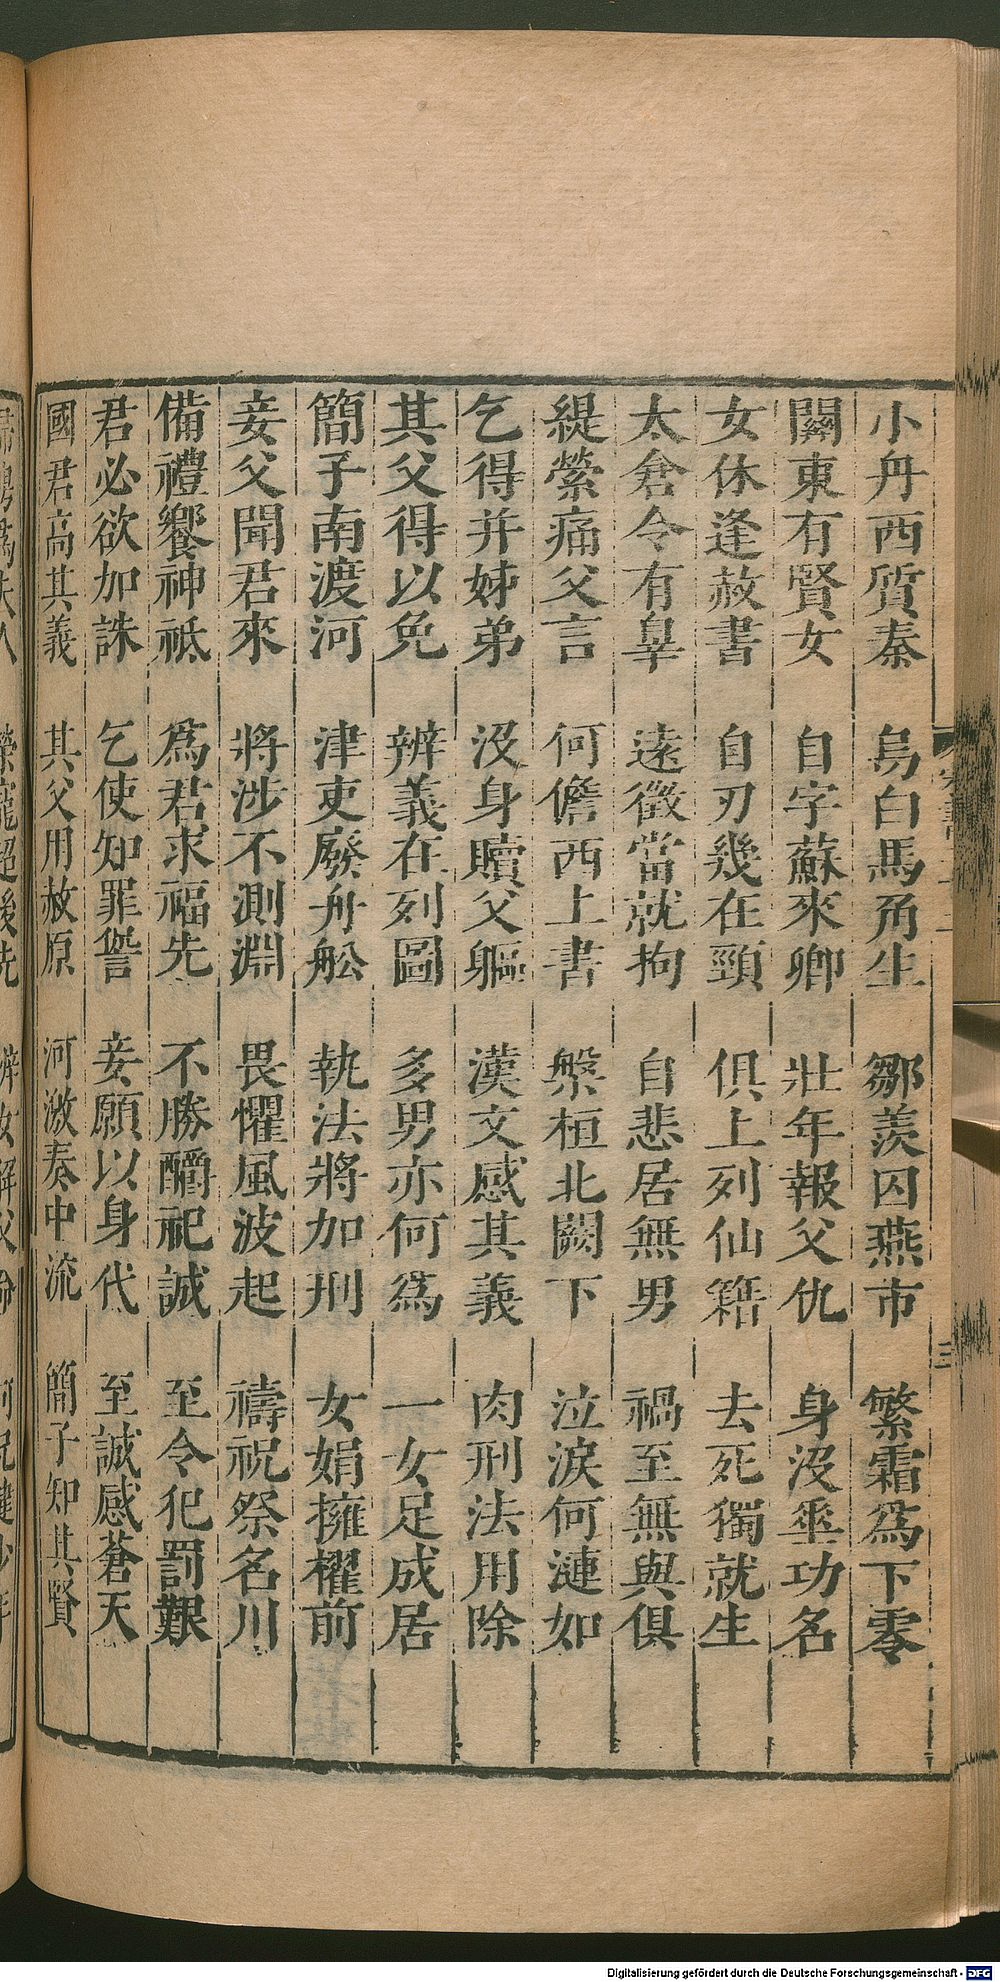 小丹西質秦 烏白馬角生 鄒羡囚燕市 繁霜爲下零
關東有賢女 自字蘇來卿 壯年報父仇 身沒垂功名
女休逢赦書 自刃幾在頸 俱上列仙籍 去死獨就生
太倉令有辠 遠徵當就拘 自悲居無男 禍至無與俱
緹縈痛父言 何儋西上書 槃桓北闕下 泣淚何漣如
乞得并姊弟 沒身贖父軀 漢文感其義 肉刑法用除
其父得以免 辨義在列圖 多男亦何爲 一女足成居
簡子南渡河 津吏廢舟舩 執法將加刑 女娟擁櫂前
妾父聞君來 將涉不測淵 畏懼風波起 禱祝祭名川
備禮饗神祇 爲君求福先 不勝釂祀誠 至令犯罰艱
君必欲加誅 乞使知罪諐 妾願以身代 至誠感蒼天
國君高其義 其父用赦原 河激奏中流 簡子知其賢
三
Digitalisierung gefördert durch die Deutsche Forschungsgemeinschaft - DFG